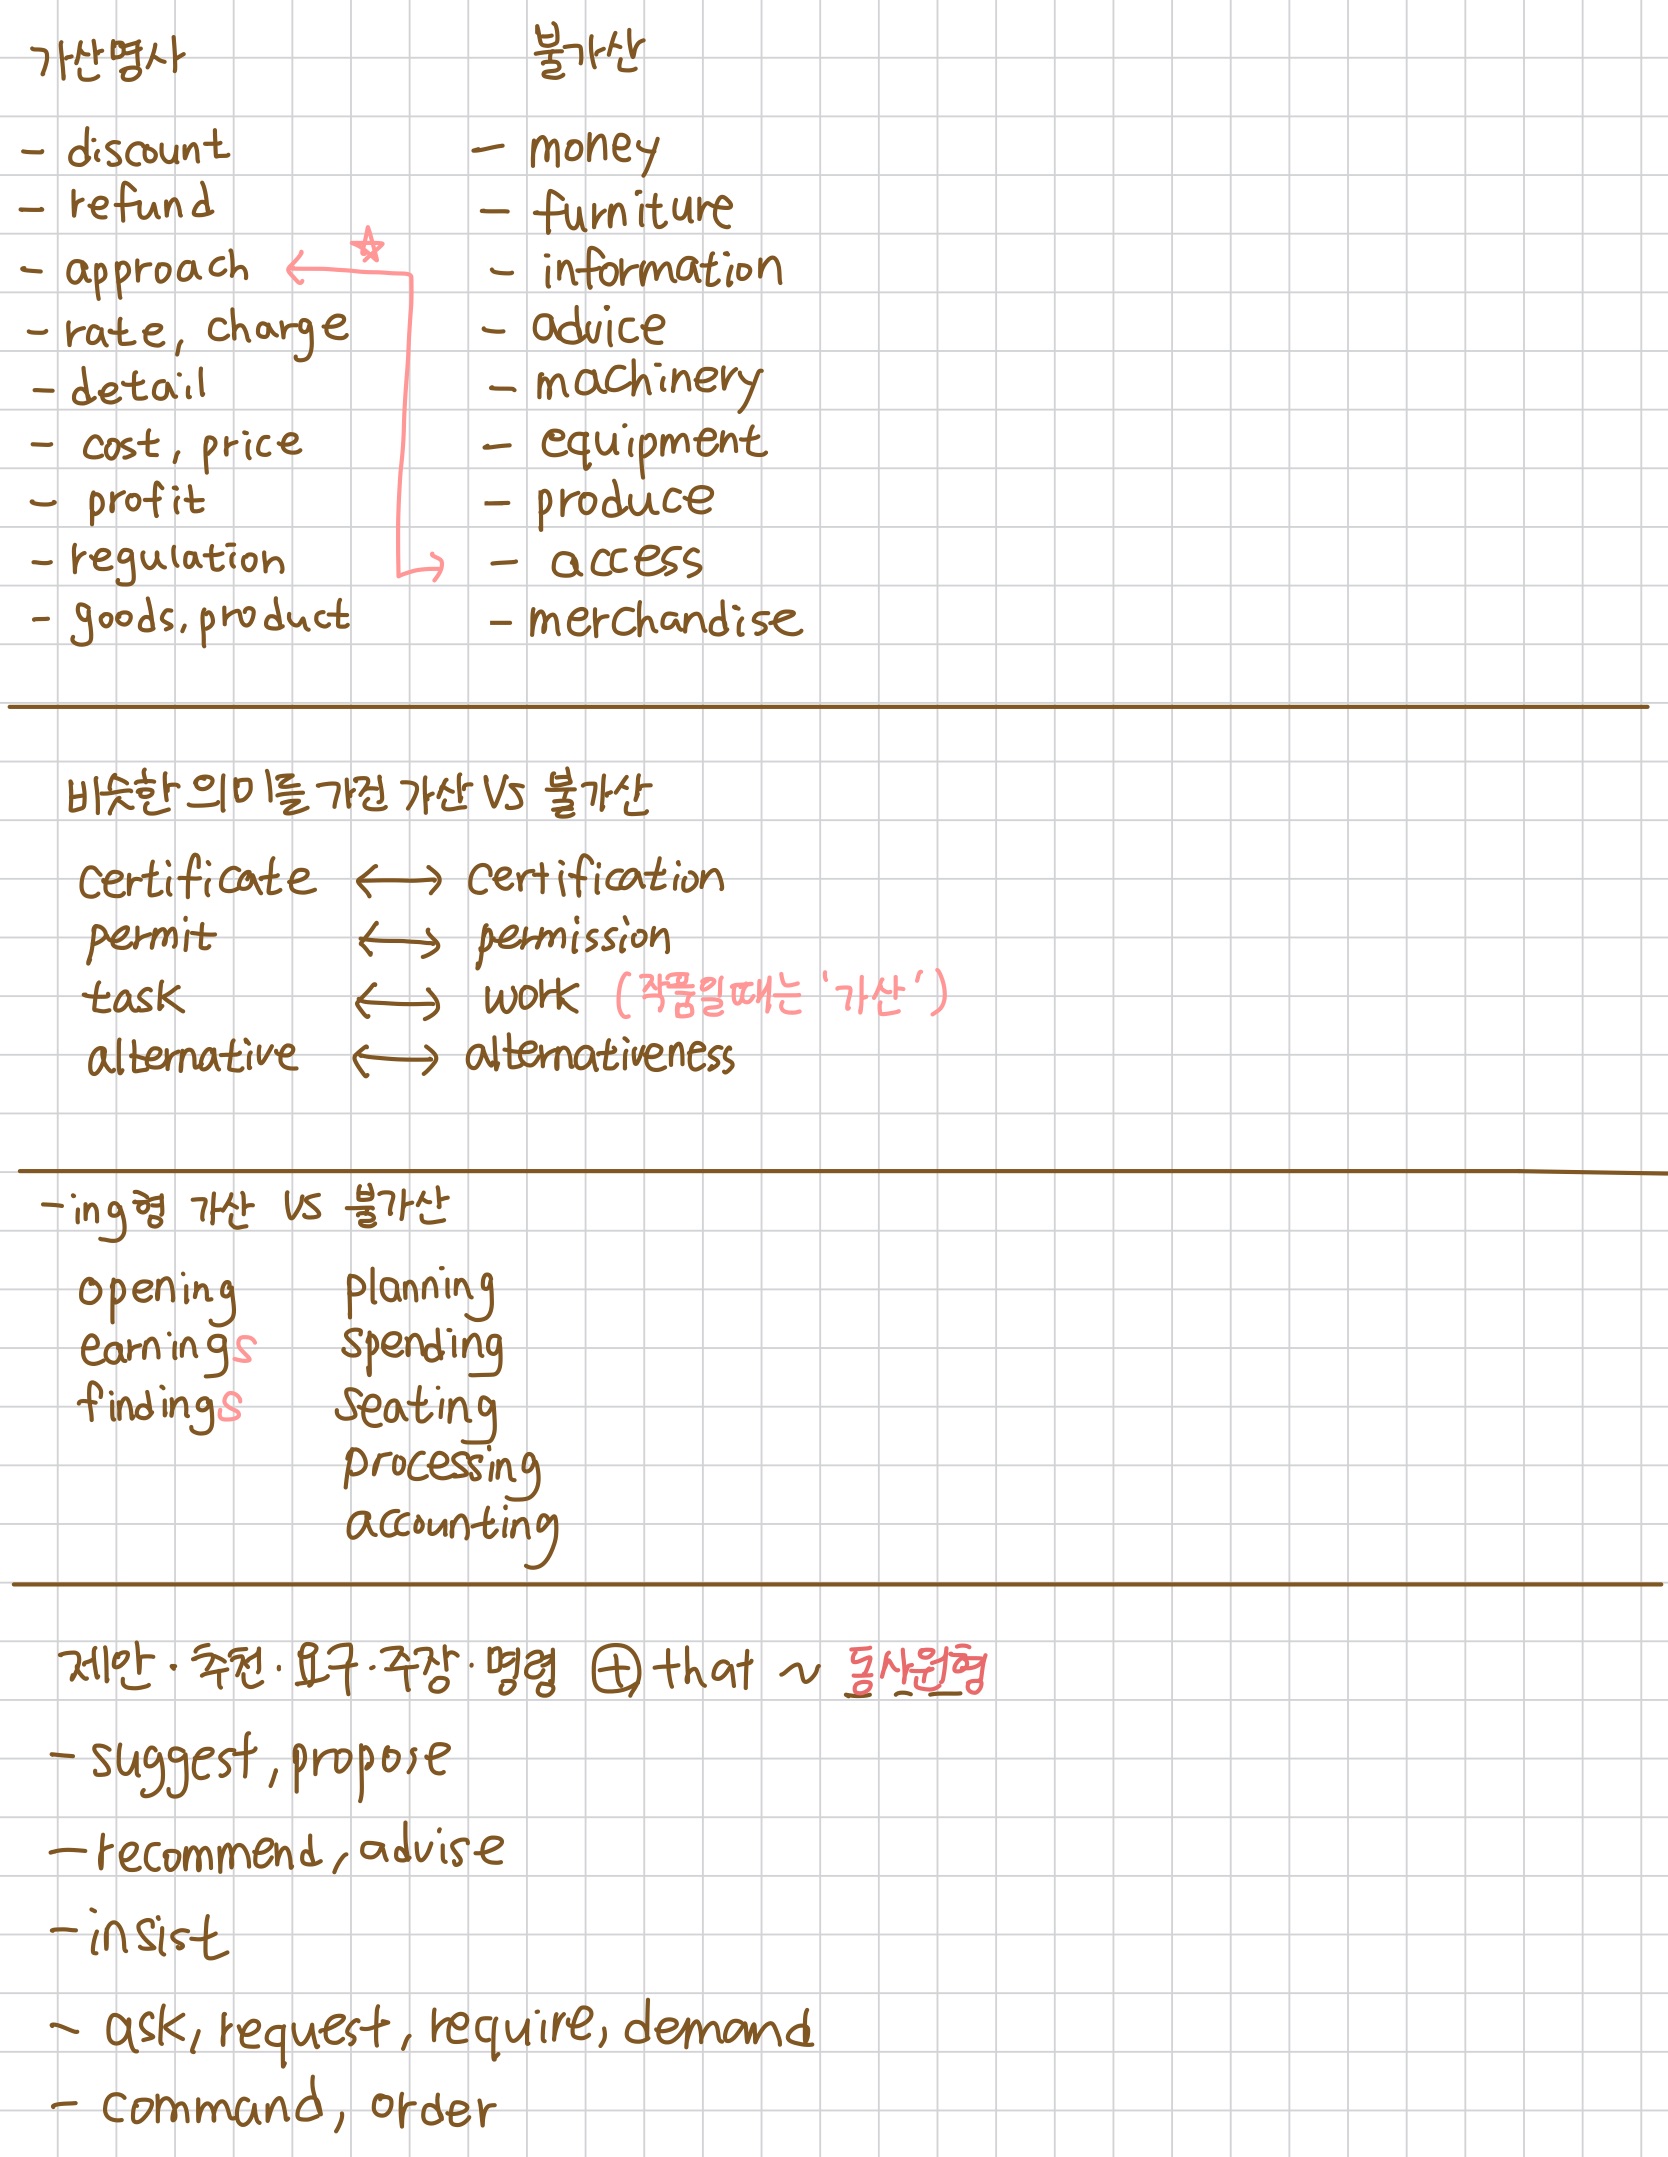 가산명사 불가산
- discount - money
- refund - furniture
- approach ☆ - information
- rate, charge - advice
- detail - machinery
- cost, price - equipment
- profit - produce
- regulation - access
- goods, product - merchandise
비슷한 의미를 가진 가산 VS 불가산
certificate ↔ certification
permit ↔ permission
task ↔ work (작품일때는 '가산')
alternative ↔ alternativeness
-ing형 가산 VS 불가산
opening planning
earnings spending
findings seating
processing
accounting
제안·추천·요구·주장·명령 ⊕ that ~ 동사원형
- suggest, propose
- recommend, advise
- insist
- ask, request, require, demand
- command, order